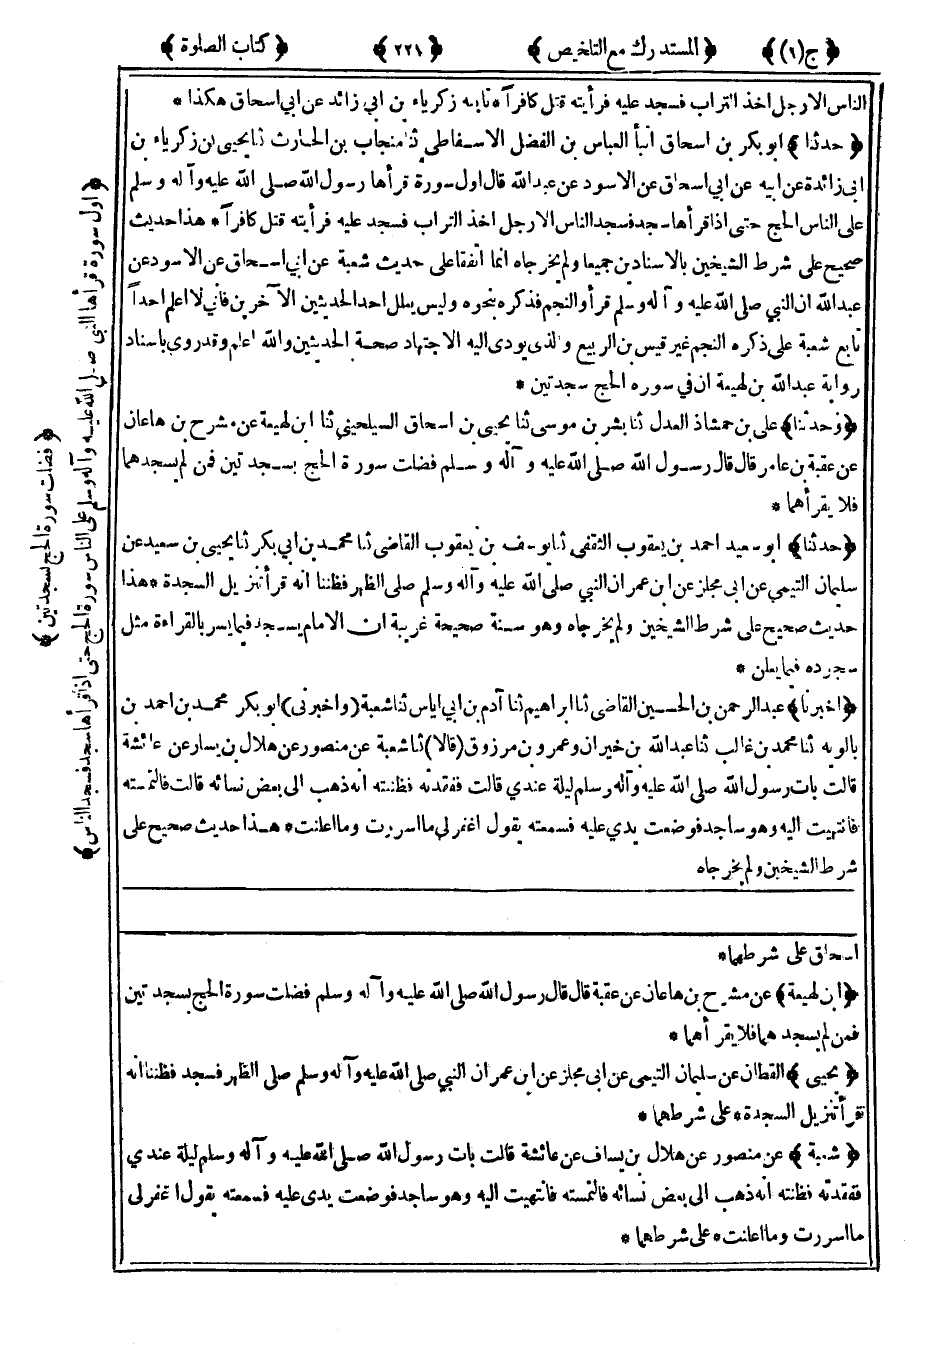 ﴿ ج (١) ﴾ ﴿ المستدرك مع التلخيص ﴾ ﴿ ٢٢١ ﴾ ﴿ كتاب الصلوة ﴾
الناس الا رجل اخذ التراب فسجد عليه فرأيته قتل كافرآ * تابعه زكرياء بن ابي زائد عن ابي اسحاق هكذا *
﴿ حدثنا ﴾ ابو بكر بن اسحاق انبأ العباس بن الفضل الاسفاطي ثنا منجاب بن الحارث ثنا يحيى بن زكرياء بن
ابى زائدة عن ابيه عن ابي اسحاق عن الاسود عن عبد الله قال اول سورة قرأها رسول الله صلى الله عليه وآله وسلم
على الناس الحج حتى اذا قرأها سجد فسجد الناس الا رجل اخذ التراب فسجد عليه فرأيته قتل كافرآ * هذا حديث
صحيح على شرط الشيخين بالاسنادين جميعا ولم يخرجاه انما اتفقا على حديث شعبة عن ابي اسحاق عن الاسود عن
عبد الله ان النبي صلى الله عليه وآله وسلم قرأ والنجم فذكره بنحوه وليس يعلل احد الحديثين الآخرين فاني لا اعلم احدآ
تابع شعبة على ذكره النجم غير قيس بن الربيع والذى يودى اليه الاجتهاد صحة الحديثين والله اعلم وقد روي باسناد
رواية عبد الله بن لهيعة ان في سوره الحج سجدتين *
﴿ وحدثنا ﴾ علي بن حمشاذ العدل ثنا بشر بن موسى ثنا يحيى بن اسحاق السيلحيني ثنا ابن لهيعة عن مشرح بن هاعان
عن عقبة بن عامر قال قال رسول الله صلى الله عليه وآله وسلم فضلت سورة الحج بسجدتين فمن لم يسجدهما
فلا يقرأهما *
﴿ حدثنا ﴾ ابو سعيد احمد بن يعقوب الثقفي ثنا يوسف بن يعقوب القاضي ثنا محمد بن ابي بكر ثنا يحيى بن سعيد عن
سليمان التيمي عن ابى مجلز عن ابن عمر ان النبي صلى الله عليه وآله وسلم صلى الظهر فظننا انه قرأ تنزيل السجدة * هذا
حديث صحيح على شرط الشيخين ولم يخرجاه وهو سنة صحيحة غريبة ان الامام يسجد فيما يسر بالقراءة مثل
سجوده فيما يعلن *
﴿ اخبرنا ﴾ عبد الرحمن بن الحسين القاضي ثنا ابراهيم ثنا آدم بن ابي اياس ثنا شعبة (واخبرنى) ابو بكر محمد بن احمد بن
بالويه ثنا محمد بن غالب ثنا عبد الله بن خيران وعمرو بن مرزوق (قالا) ثنا شعبة عن منصور عن هلال بن يسار عن عائشة
قالت بات رسول الله صلى الله عليه وآله وسلم ليلة عندي قالت ففقدته فظننته انه ذهب الى بعض نسائه قالت فالتمسته
فانتهيت اليه وهو ساجد فوضعت يدي عليه فسمعته يقول اغفر لي ما اسررت وما اعلنت * هذا حديث صحيح على
شرط الشيخين ولم يخرجاه
اسحاق على شرطهما *
﴿ ابن لهيعة ﴾ عن مشرح بن هاعان عن عقبة قال قال رسول الله صلى الله عليه وآله وسلم فضلت سورة الحج بسجدتين
فمن لم يسجدهما فلا يقرأهما *
﴿ يحيى ﴾ القطان عن سليمان التيمي عن ابى مجلز عن ابن عمر ان النبي صلى الله عليه وآله وسلم صلى الظهر فسجد فظننا انه
قرأ تنزيل السجدة * على شرطهما *
﴿ شعبة ﴾ عن منصور عن هلال بن يساف عن عائشة قالت بات رسول الله صلى الله عليه وآله وسلم ليلة عندي
ففقدته فظننته انه ذهب الى بعض نسائه فالتمسته فانتهيت اليه وهو ساجد فوضعت يدى عليه فسمعته يقول اغفر لى
ما اسررت وما اعلنت * على شرطهما *
﴿ اول سورة قرأها النبي صلى الله عليه وآله وسلم على الناس سورة الحج حتى اذا قرأها سجد فسجد الناس ﴾
﴿ فضلت سورة الحج بسجدتين ﴾